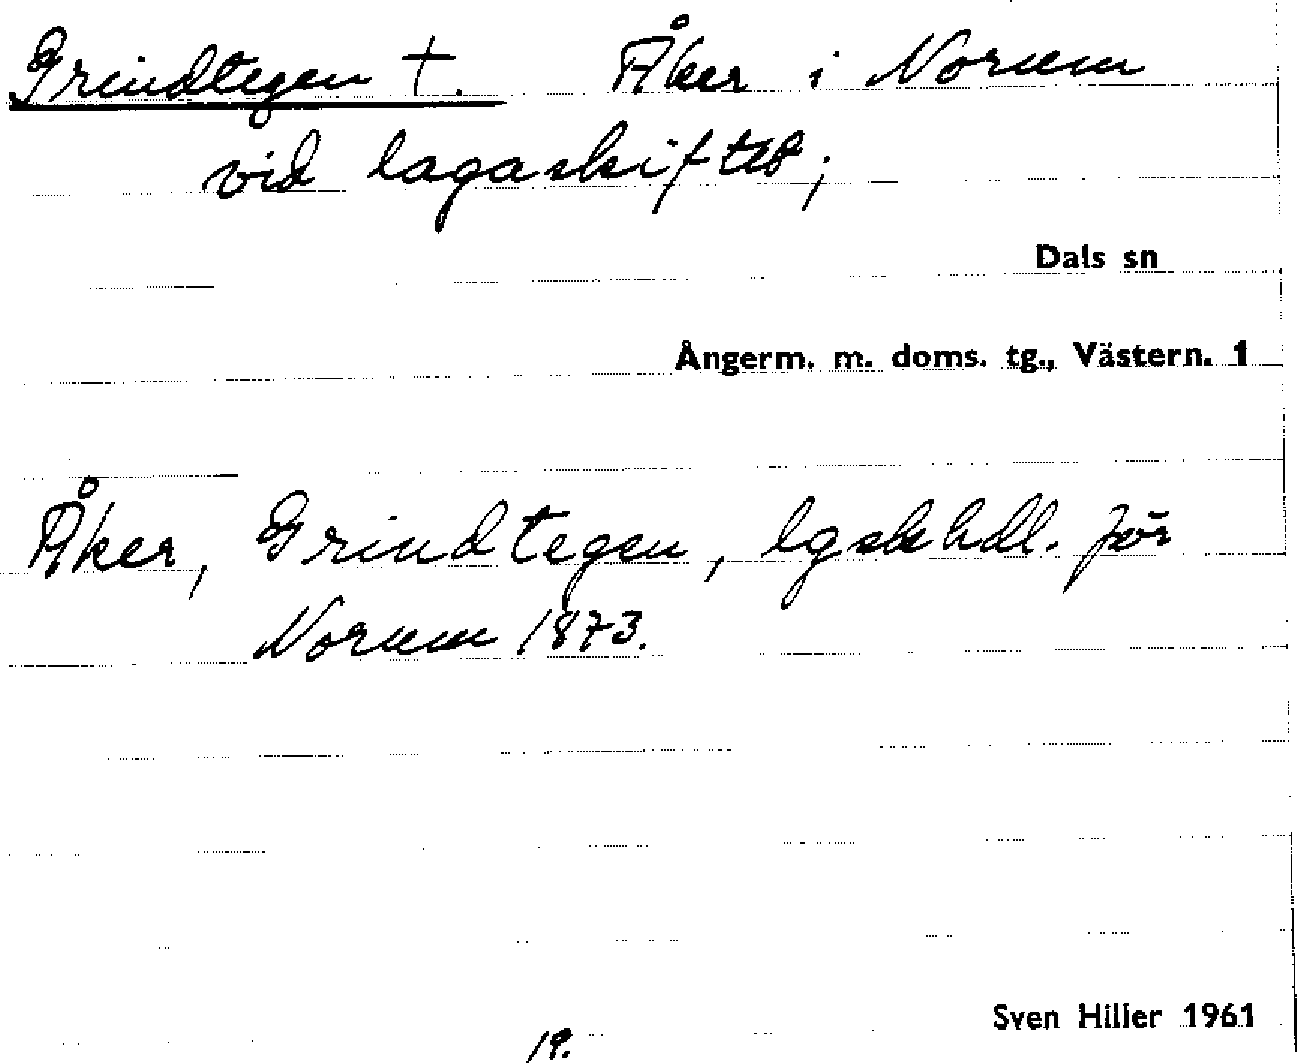 Grindtegen †. Åker i Norum
vid lagaskiftet;
Dals sn
Ångerm. m. doms. tg., Västern. 1
Åker, Grindtegen, lgskhdl. för
Norum 1873.
Sven Hiller 1961
19.